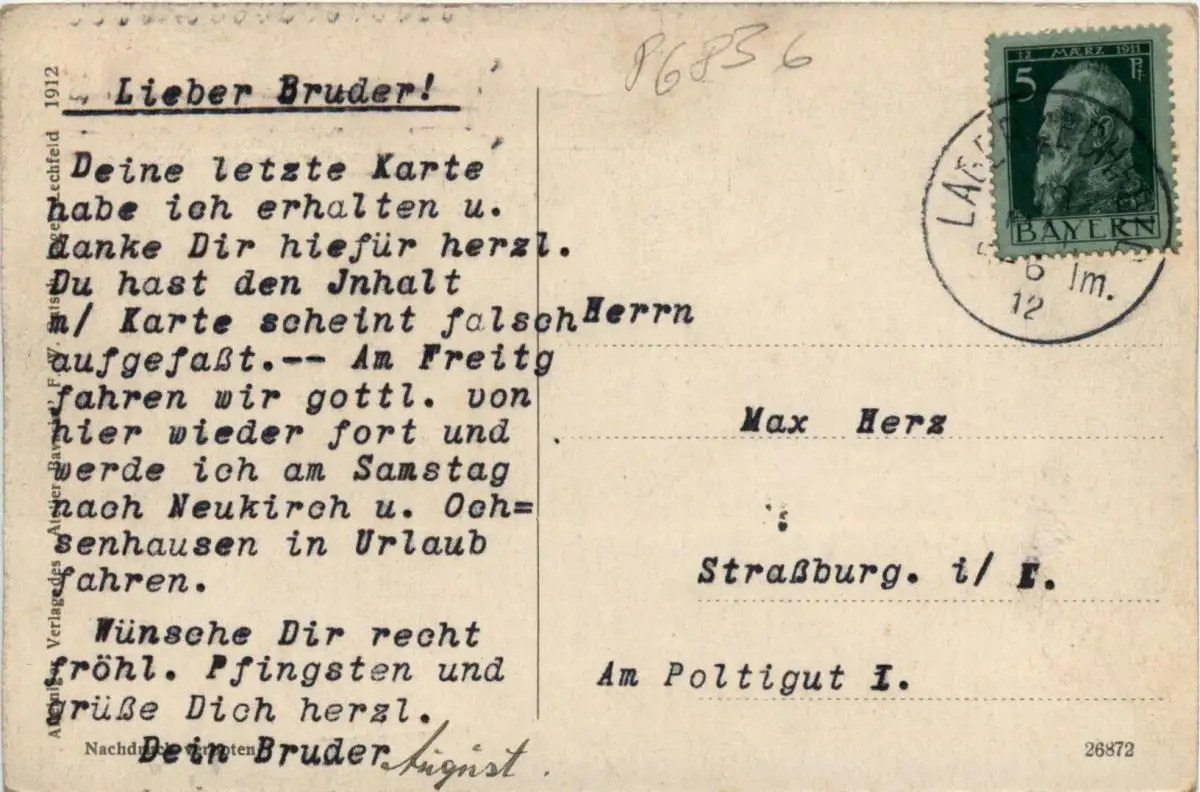 86836
Lieber Bruder!
Deine letzte Karte
habe ich erhalten u.
danke Dir hiefür herzl.
Du hast den Jnhalt
m/ Karte scheint falsch
aufgefaßt.-- Am Freitg
fahren wir gottl. von
hier wieder fort und
werde ich am Samstag
nach Neukirch u. Och=
senhausen in Urlaub
fahren.
Wünsche Dir recht
fröhl. Pfingsten und
grüße Dich herzl.
Dein Bruder August.
Herrn
Max Herz
Straßburg. i/ E.
Am Poltigut I.
12 MÆRZ 1911
5 Pf
BAYERN
LAGER LECHFELD
6 Nm.
12
Verlag des Atelier "Bavaria" F. W.
Lager Lechfeld 1912
Nachdruck verboten
26872